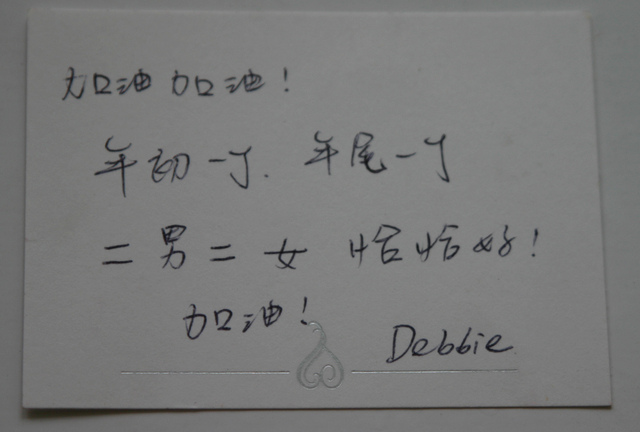 加油加油!
年初一丁. 年尾一丁
二男二女 恰恰好!
加油!
Debbie